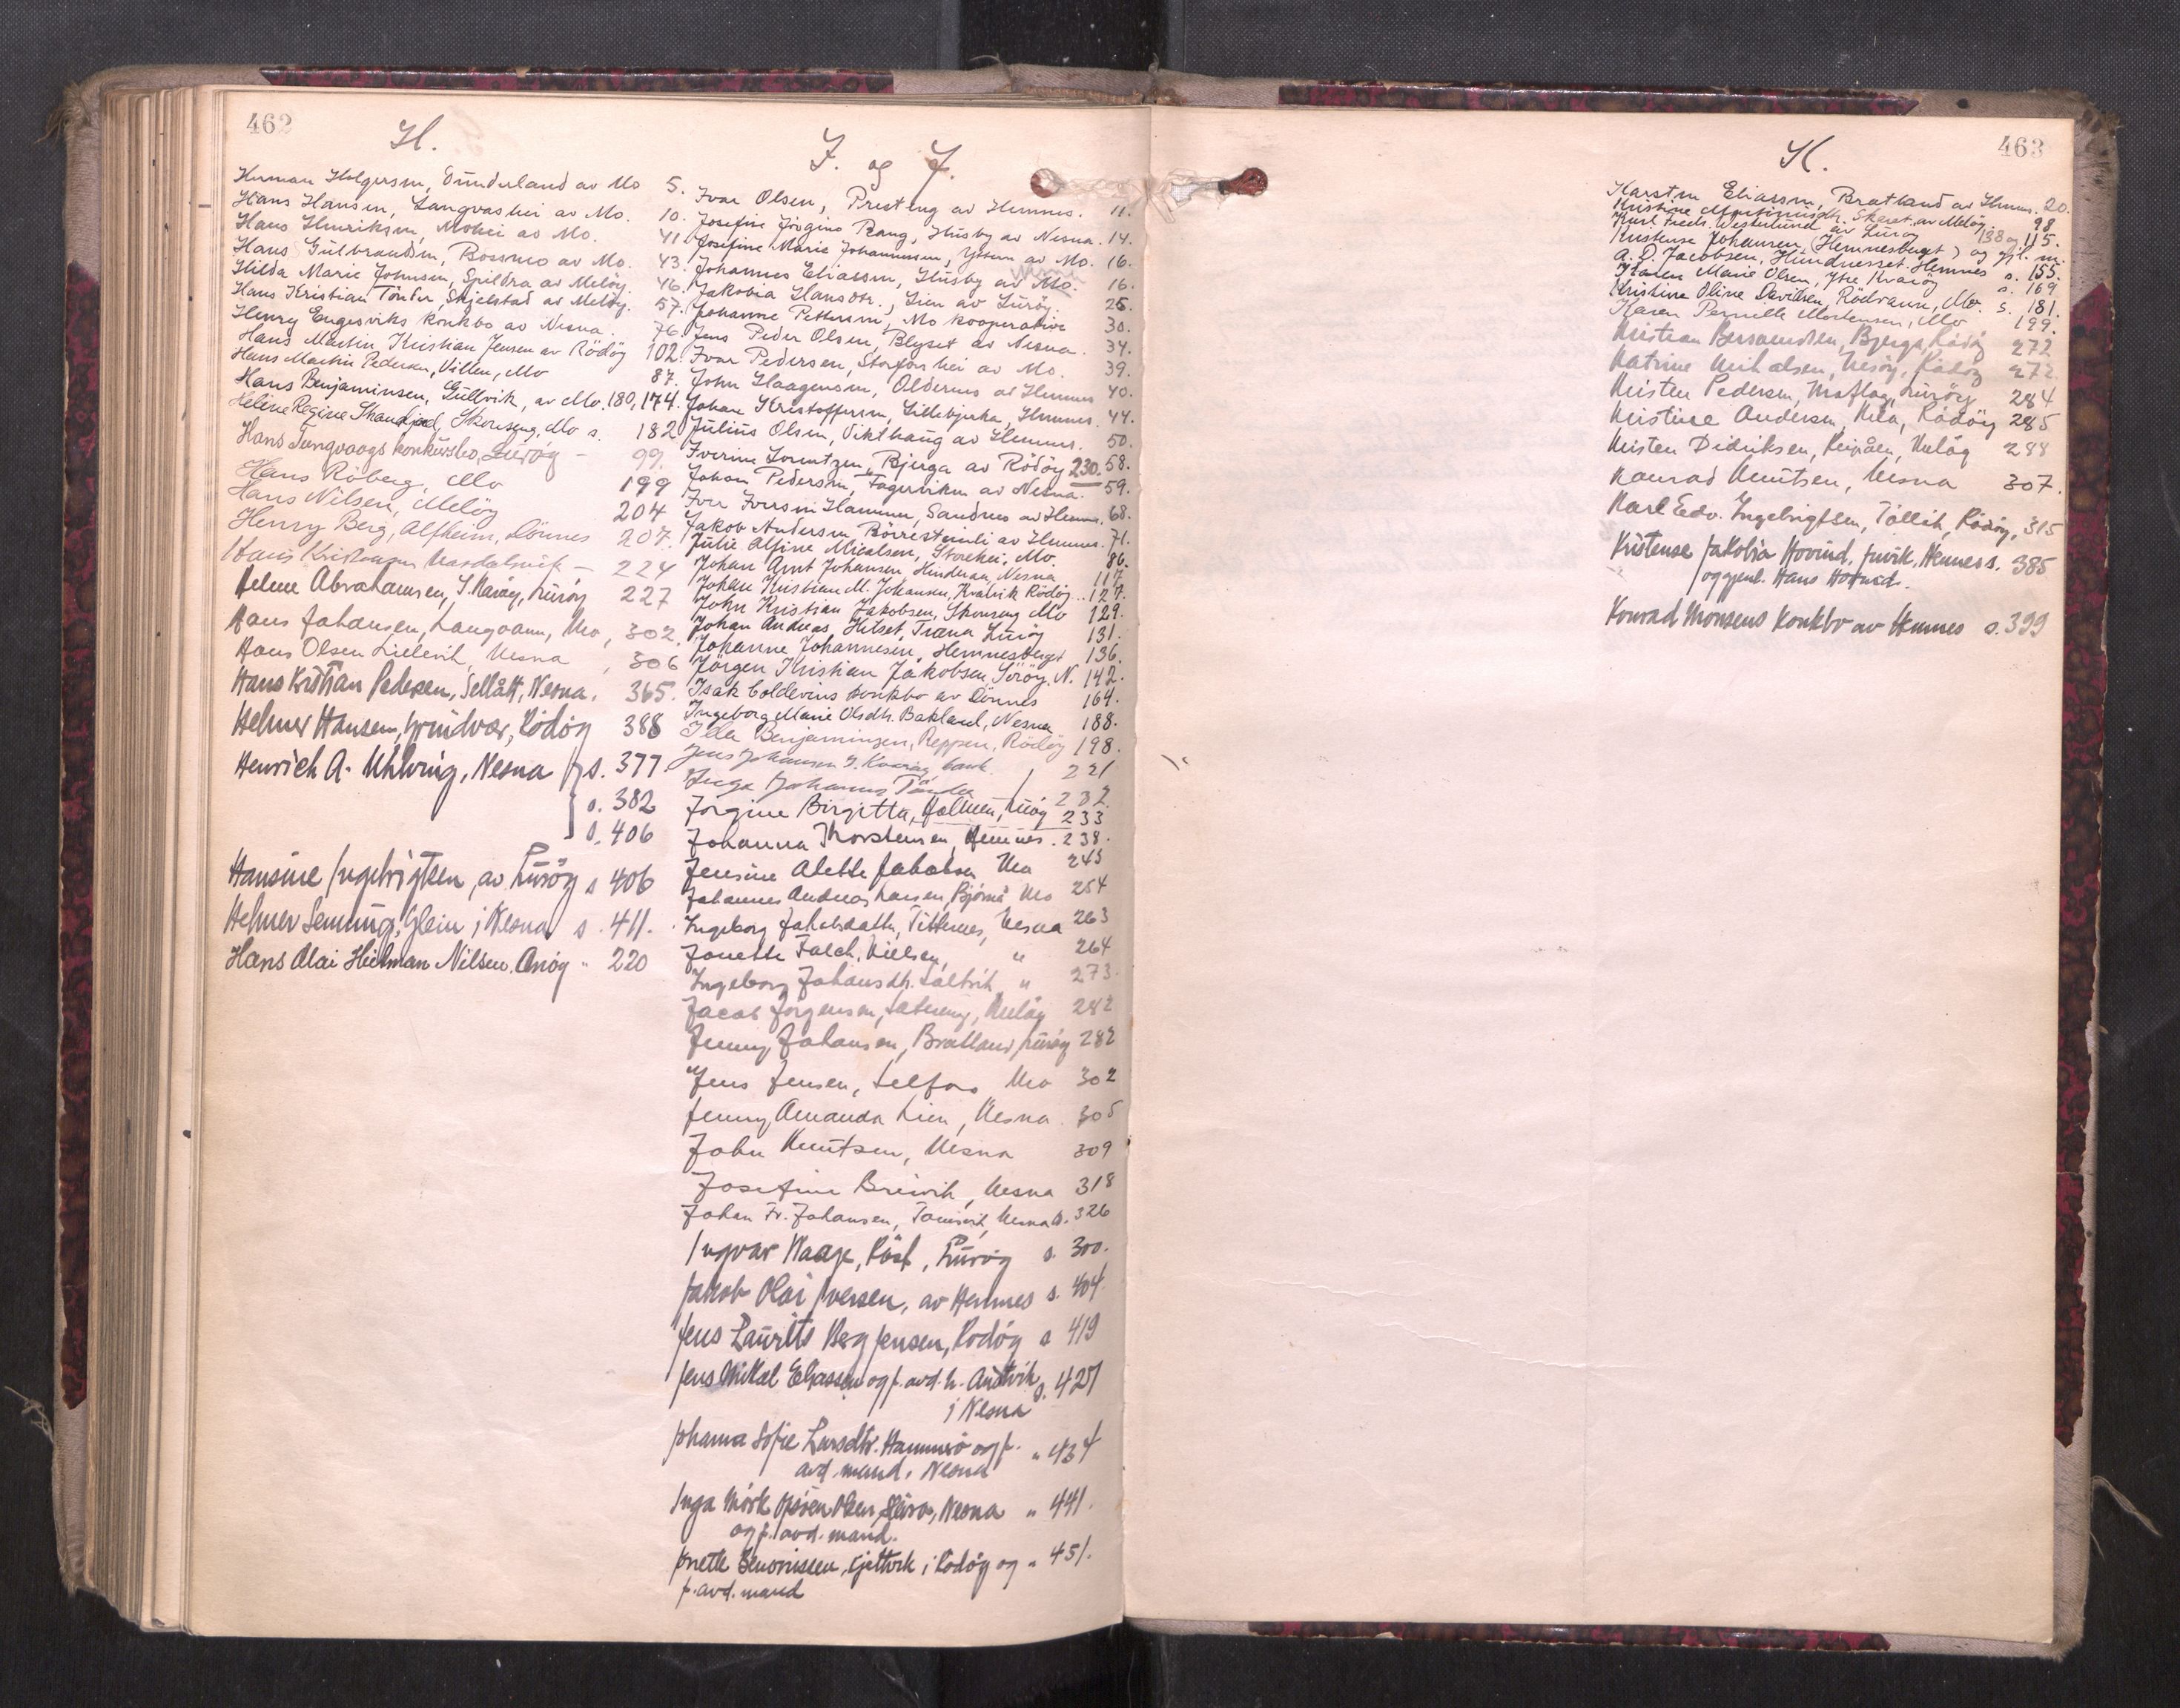 462
H.
Herman Holgersen, Dunderland av Mo 5.
Hans Hansen, Langvashei av Mo. 10.
Hans Henriksen, Mohei av Mo. 41
Hans Gulbrandsen, Bossmo av Mo. 43.
Hilda Marie Johnsen, Spildra av Melöy. 46.
Hans Kristian Tönder, Skjelstad av Melöy. 57.
Henry Engesviks konkbo av Nesna. 76.
Hans Martin Kristian Jensen av Rödöy 102.
Hans Martin Pedersen, Villen, Mo 87.
Hans Benjaminsen, Gullvik, av Mo. 180, 174.
Heline Regine Skonseng, Mo s. 182
Hans Tungvaags konkursbo, Luröy - 99.
Hans Röberg, Mo 199
Hans Nilsen, Melöy 204
Henry Berg, Alfheim, Dönnes 207.
Hans Kristiansen - 224
Helene Abrahamsen, S. Kvaröy, Luröy 227
Hans Johansen, Langvann, Mo, 302.
Hans Olsen Lillevik, Nesna, 306
Hans Kristian Pedersen, Sellått, Nesna. 365.
Helmer Hansen, Grindvar, Rödöy 388
Henrich A. Uhlving, Nesna s. 377
s. 382
s. 406
Hansine Ingebrigtsen, av Luröy s 406
Helmer Senning, Glein i Nesna s. 411.
Hans Olai Hilman Nilsen. " 220
I. og J.
Ivar Olsen, Presteng av Hemnes. 11.
Josefine Jörgine Rang, Husby av Nesna. 14.
Josefine Marie Johannessen, Yttern av Mo. 16.
Johannes Eliassen, Husby av Mo. 16.
Jakobia Hansdtr., Lien av Luröy. 25.
Johanne Pettersen, Mo kooperative 30.
Jens Peder Olsen, Blyset av Nesna. 34.
Ivar Pedersen, Storforshei av Mo. 39.
John Haagensen, Oldernes av Hemnes 40.
Johan Kristoffersen, Lillebjerka, Hemnes. 44.
Julius Olsen, Vikthaug av Hemnes. 50.
Iverine Lorentzen, Bjerga av Rödöy 230. 58.
Johan Pedersen, Fagerviken av Nesna. 59.
Iver Iversen Hammer, Sandnes av Hemnes. 68.
Jakob Andersen Börrestemli av Hemnes. 71.
Julie Alfine Micalsen, Storehei, Mo. 86.
Johan Arnt Johansen Hindenaa, Nesna 117.
Johan Kristian M. Johansen, Kvalvik Rödöy.. 127.
John Kristian Jakobsen, Skonseng Mo 129.
Johan Andreas Hilset, Træna Luröy 131.
Johanne Johannesen, Hemnesberget 136.
Jörgen Kristian Jakobsen, Söröy. N. 142.
Isak Coldevins konkbo av Dönnes 164.
Ingeborg Marie Olsdtr. Bakland, Nesna 188.
Ida Benjaminsen, Reppen, Rödöy 198.
Jens Johansen S. Kvaröy, bank. 221
Inga Johannes Tönder 232.
Jörgine Birgitta, Holmen, Luröy 233
Johanna Thorstensen, Hemnes. 238.
Jensine Alette Jakobsen Mo 245
Johannes Andreas Larsen, Bjørnå Mo 254
Ingeborg Jakobsdatter, Vittenes, Nesna 263
Jonette Falch, Nielsen, " 264
Ingeborg Johansdt. Saltvik, " 273.
Jacob Jörgensen, Melöy 282
Jenny Johansen, Bratland, Luröy 282
Jens Jensen, Selfors Mo 302
Jenny Amanda Lien, Nesna 305
John Knutsen, Nesna 309
Josefine Breivik, Nesna 318
Johan Fr. Johansen, Nesna s. 326
Ingvar Waage, Röst, Luröy s. 300.
Jakob Olai Iversen, av Hemnes s. 404.
Jens Laurits Berg Jensen, Rodöy s 419
Jens Mikal Eliassen og f. avd. h. Austvik s. 427
i Nesna
Johanna Sofie Larsdtr. Hammerö og f. " 434
avd. mand. Nesna
Inga Mörk Olsen, Nesna " 441.
og f. avd. mand.
Jonette i Rodöy og " 451.
f. avd. mand
463
K.
Karsten Eliassen, Bratland av Hemnes. 20.
Kristine Skaret av Melöy. 98.
Karl Fredr. Westerlund av Luröy 138 og 115.
Kristense Johansen (Hemnesberget) og gjl. m.
A. P. Jacobsen, Hundneset Hemnes s. 155.
Karen Marie Olsen, Ytre Kvaröy s. 169.
Kristine Oline Davidsen, Rödvann, Mo. s. 181.
Karen Pernille Mortensen, Mo 199.
Kristian Berntsen, Bjerga, Rödöy 272
Katrine Mikalsen, Nesöy, Rödöy 272.
Kristen Pedersen, Luröy 284
Kristine Andersen, Mela, Rödöy 285
Kristen Didriksen, Reipåen, Melöy 288
Konrad Knutsen, Nesna 307.
Karl Edv. Ingebrigtsen, Tollik, Rödöy, 315
Kristense Jakobia Hovind, Juvik, Hemnes s. 385
og gjenl. Hans Hovind.
Konrad Monsens Konkbo av Hemnes s. 399